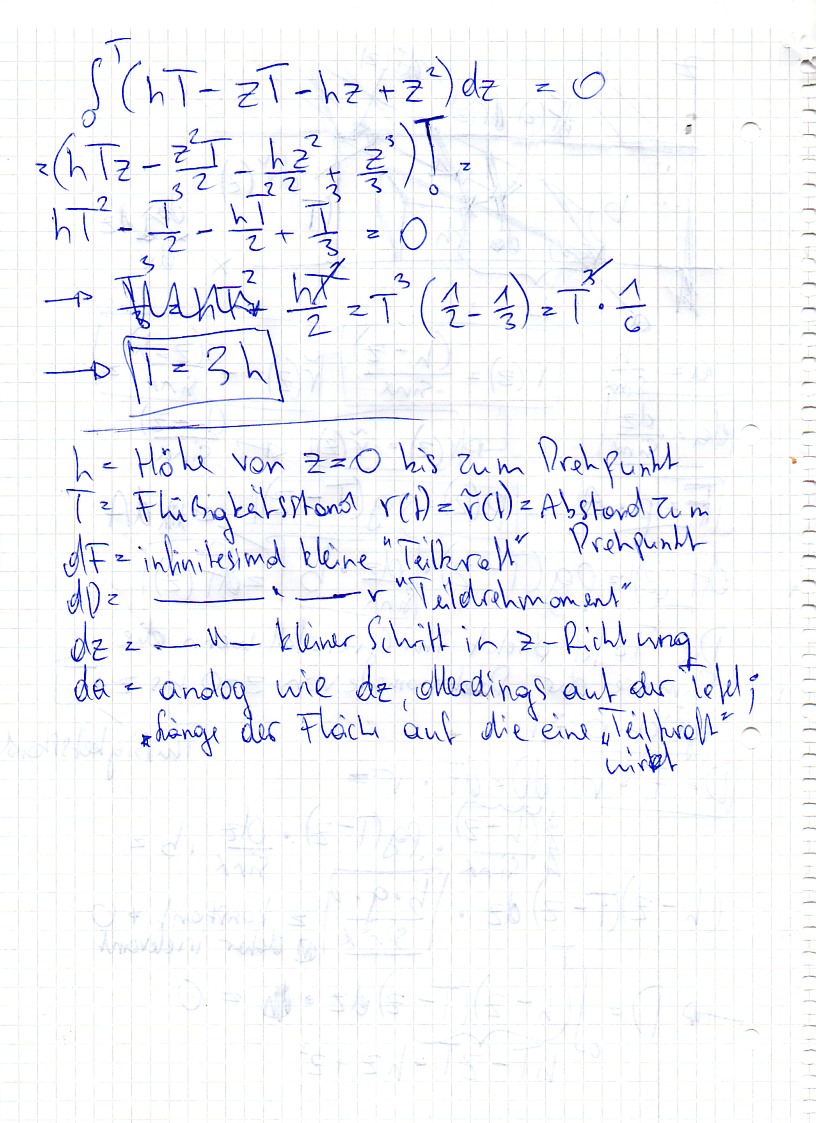 ∫₀ᵀ (hT - zT - hz + z²) dz = 0
= (hTz - z²T/2 - hz²/2 + z³/3)|₀ᵀ =
hT² - T³/2 - hT²/2 + T³/3 = 0
→ hT²/2 = T³ (1/2 - 1/3) = T³ · 1/6
→ T = 3h
h = Höhe von z=0 bis zum Drehpunkt
T = Flüßigkeitsstand r(t) = r̃(t) = Abstand zum
Drehpunkt
dF = infinitesimal kleine "Teilkraft"
dD = —— " —— r "Teildrehmoment"
dz = — " — kleiner Schritt in z-Richtung
da = analog wie dz, allerdings auf der Tafel;
Länge der Fläche auf die eine „Teilkraft"
wirkt